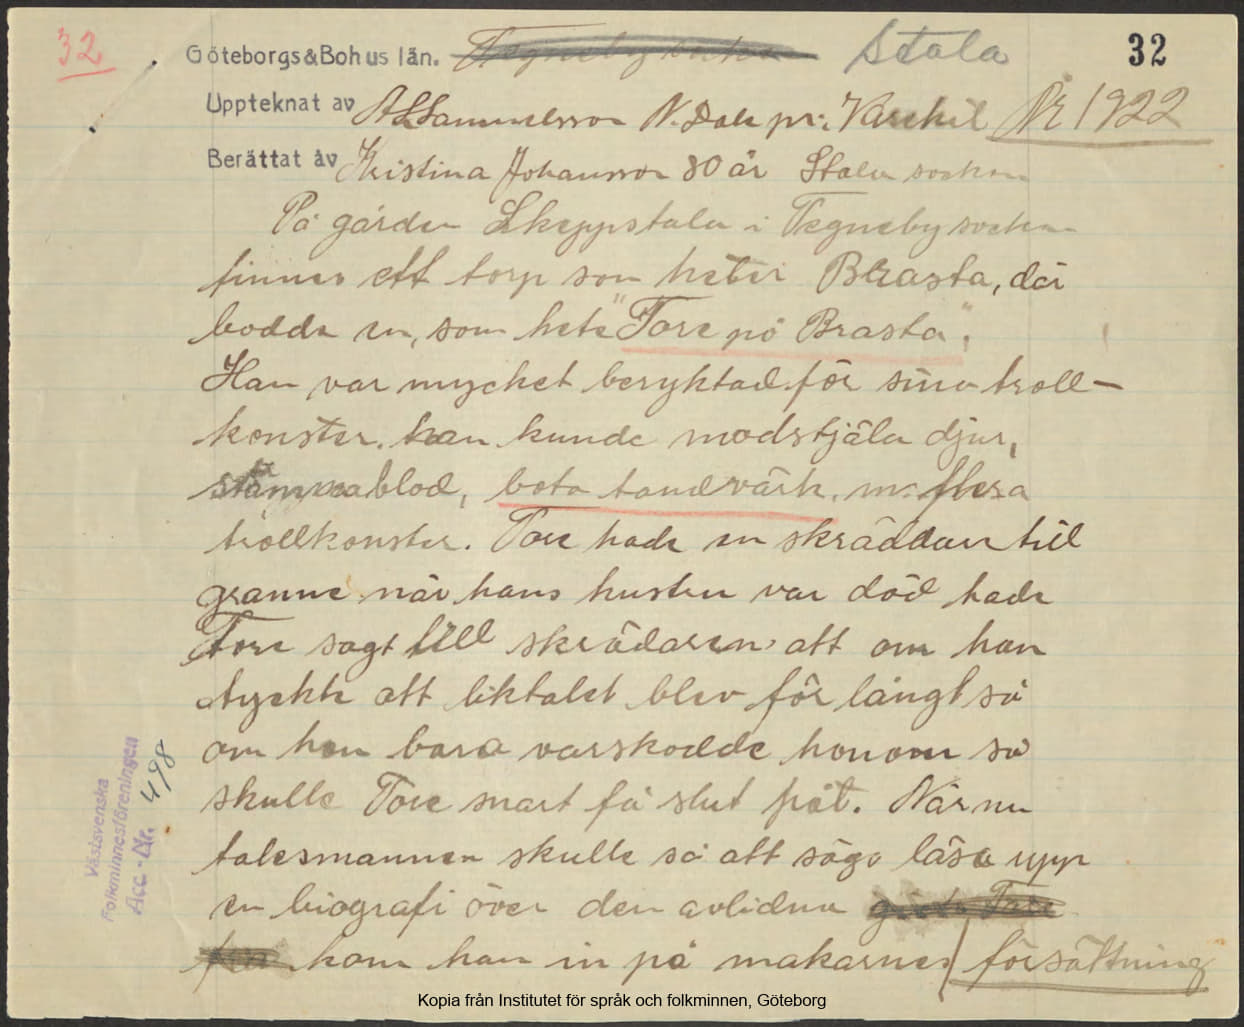 32
Göteborgs&Bohus län. Tegneby socken Stala 32
Upptecknat av A Samuelsson N. Dale pr. Varekil År 1922
Berättat av Kristina Johansson 80 år Stala socken
På gården Skeppstala i Tegneby socken
finnes ett torp som heter Brasta, där
bodde en, som hete "Tore pö Brasta".
Han var mycket beryktad för sina troll-
konster. han kunde modstjäla djur,
stämma blod, bota tandvärk, m. flera
trollkonster. Tore hade en skräddare till
granne när hans hustru var död hade
Tore sagt till skrädaren, att om han
tyckte att liktalet blev för långt så
om han bara varskodde honom så
skulle Tore snart få slut påt. När nu
talesmannen skulle så att säga läsa upp
en biografi över den avlidna
kom han in på makarnes försättning
Västsvenska
Folkminnesföreningen
Acc.-Nr. 498
Kopia från Institutet för språk och folkminnen, Göteborg